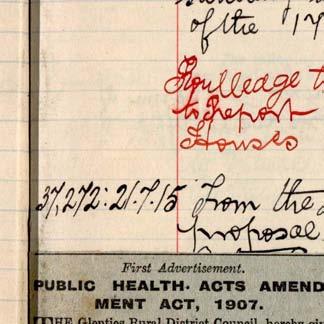 of the 17
Routledge t
to Report
Houses
37,272: 21.7.15 From the
proposal
First Advertisement.
PUBLIC HEALTH ACTS AMEND
MENT ACT, 1907.
THE Glenties Rural District Council, hereby